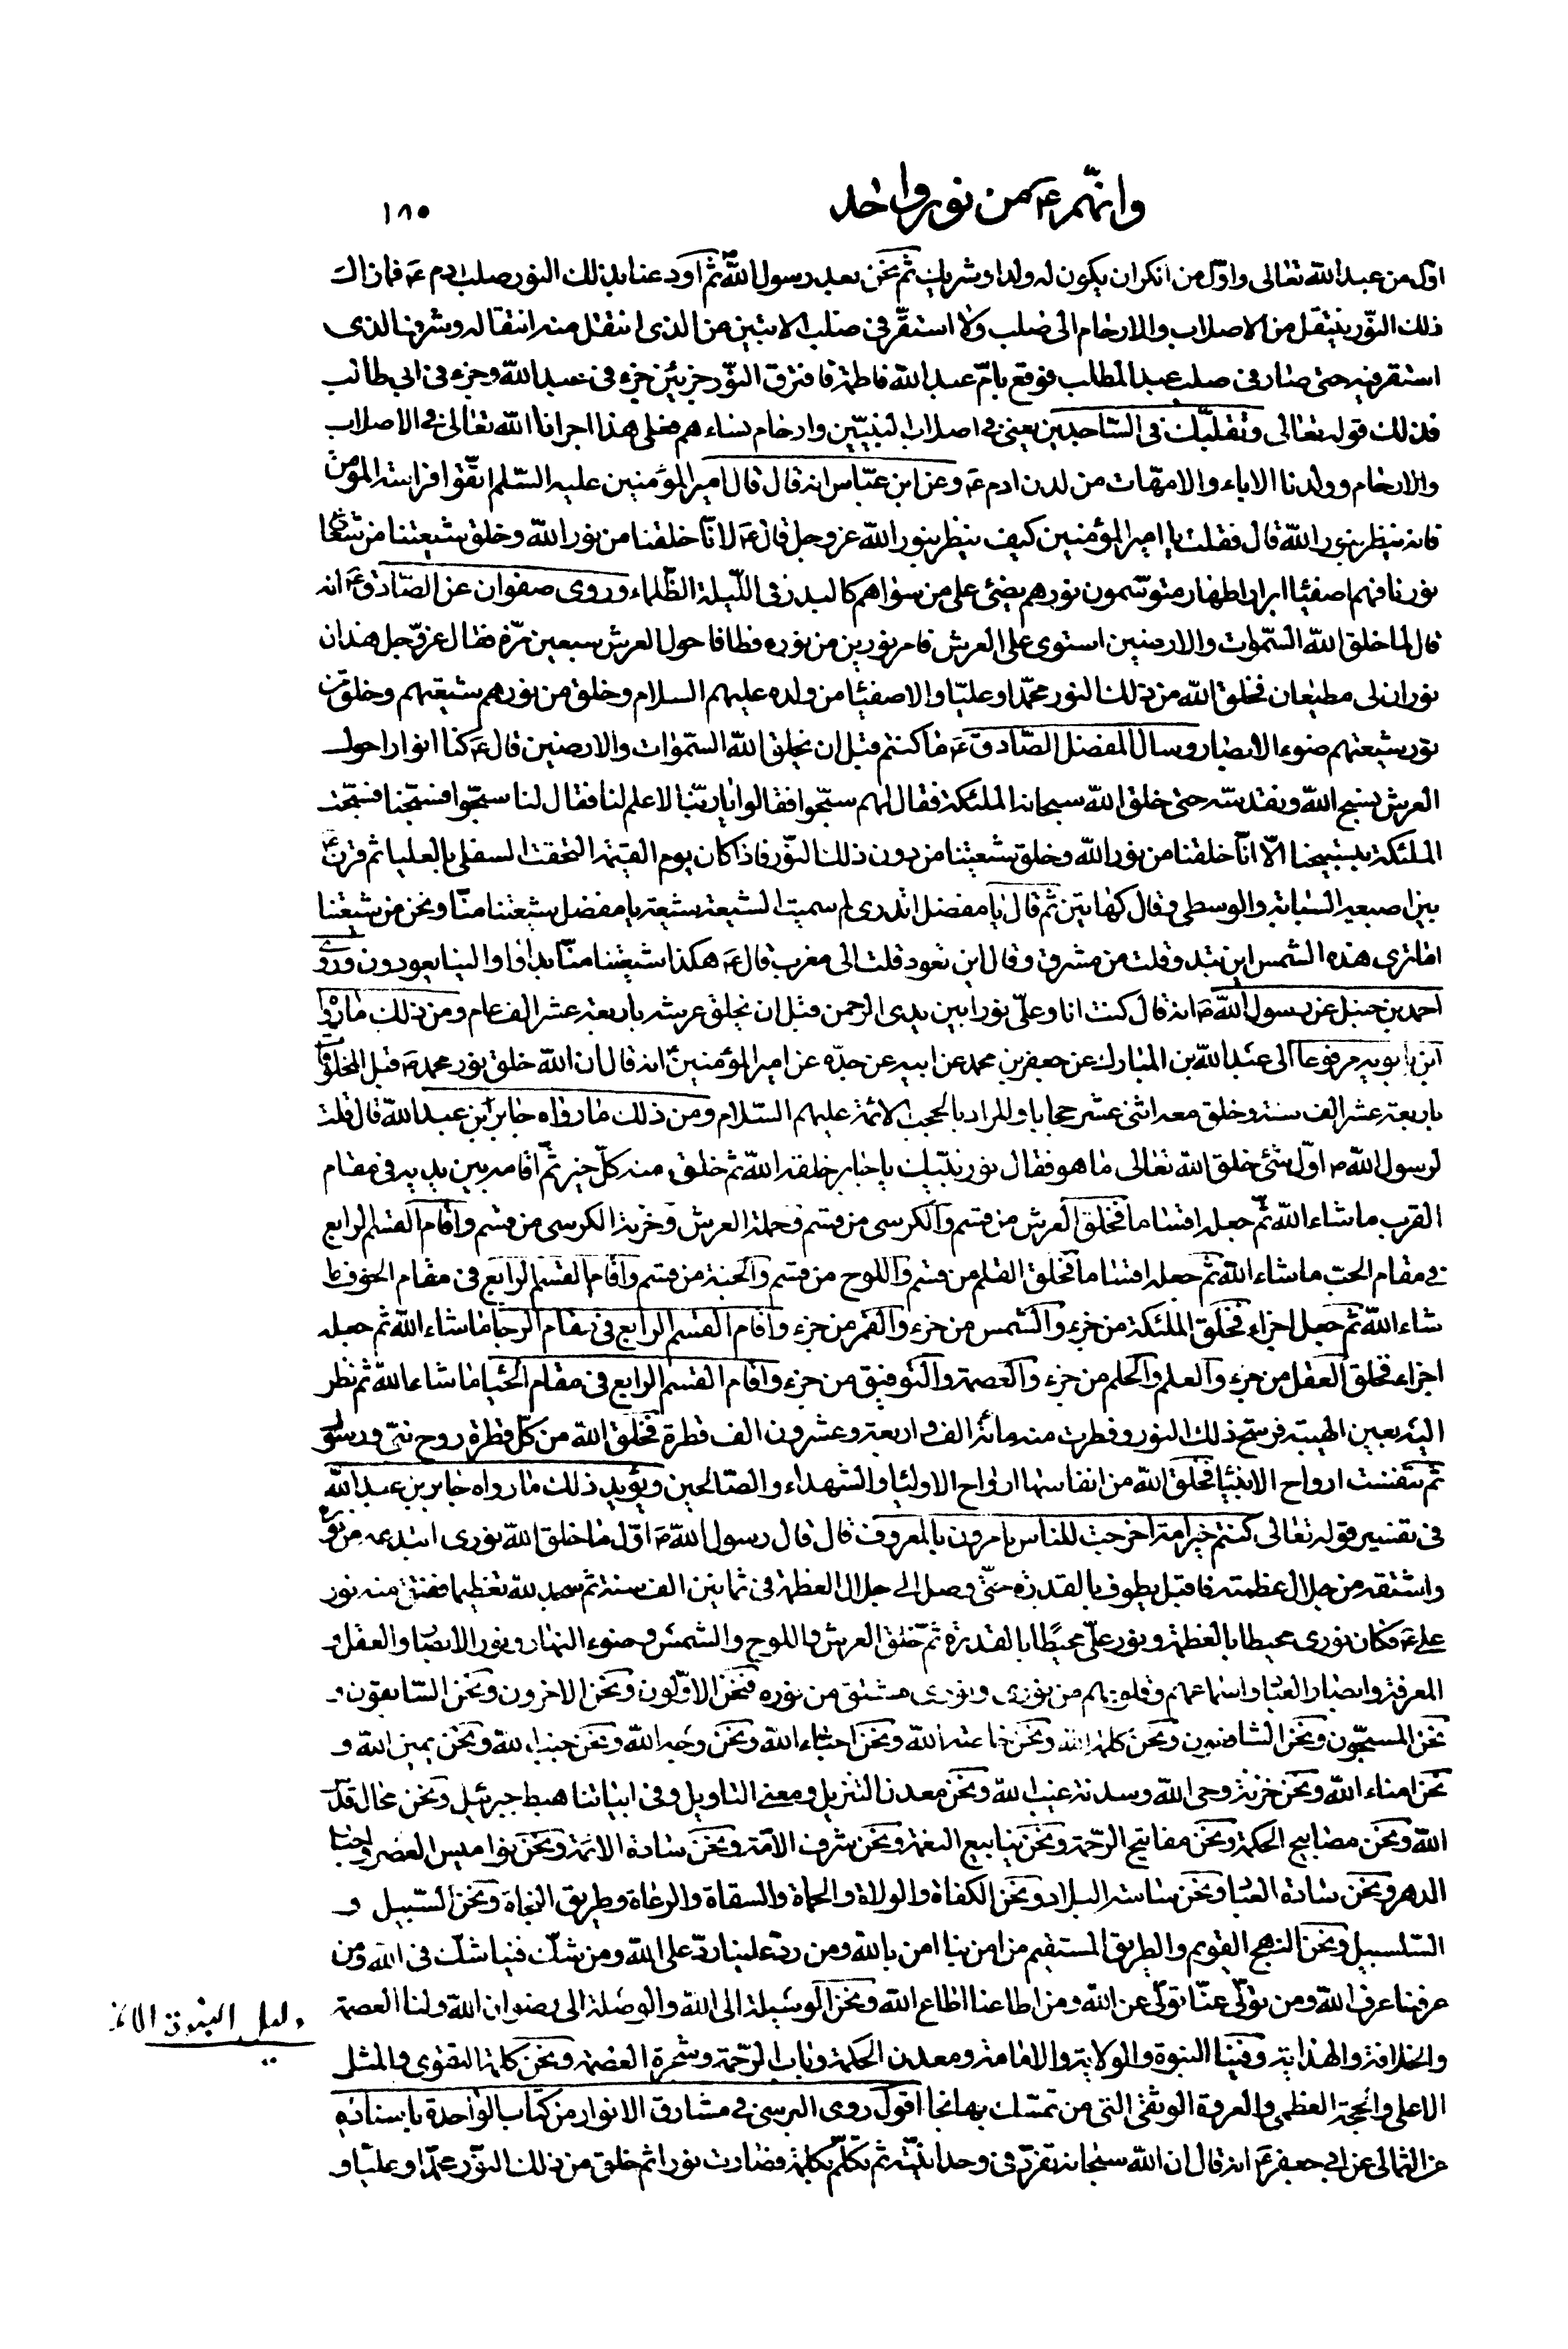 وانّهم ع من نور واحد
١٨٥
اول من عبد الله تعالى واوّل من انكر ان يكون له ولد او شريك ثم نحن بعد رسول الله ثم اودعنا بذلك النور صلب ادم ع فما زال
ذلك النّور ينتقل من الاصلاب والارحام الى صلب ولا استقرّ في صلب الا تبين من الذى انتقل منه انتقاله وشرفنا الذى
استقر فيه حتى صار فى صلب عبد المطلب فوقع بامّ عبد الله فاطمة فافترق النّور جزئين جزء فى عبد الله وجزء فى ابى طالب
فذلك قوله تعالى وتقلبّك فى السّاجدين يعنى في اصلاب النبيّين وارحام نساءهم فعلى هذا اجرانا الله تعالى في الاصلاب
والارحام وولدنا الاباء والامهّات من لدن ادم ع وعن ابن عبّاس انه قال قال امير المؤمنين عليه السّلم اتقّوا فراسة المؤمن
فانه ينظر بنور الله قال فقلت يا امير المؤمنين كيف ينظر بنور الله عز وجل قال ع لانّا خلقنا من نور الله وخلق شيعتنا من شعاع
نورنا فهم اصفيا ابرار اطهار متوسّمون نورهم يضئ على من سواهم كالبدر فى اللّيلة الظّلماء وروى صفوان عن الصّادق ع انه
قال لما خلق الله السّموات والارضين استوى على العرش فامر نورين من نوره فطافا حول العرش سبعين مرّة فقال عزّوجل هذان
نوران لى مطيعان فخلق الله من ذلك النور محمّدا وعليّا والاصفيا من ولده عليهم السلام وخلق من نورهم شيعتهم وخلق من
نور شيعتهم ضوء الابصار وسال المفضل الصّادق ع ما كنتم قبل ان يخلق الله السّموات والارضين قال ع كنا انوارا حول
العرش نسبح الله ونقدسّه حتى خلق الله سبحانه الملئكة فقال لهم سبّحوا فقالوا يا ربّنا لا علم لنا فقال لنا سبحّوا فسبّحنا فسبّحت
الملئكة بتسبيحنا الّا انّا خلقنا من نور الله وخلق شيعتنا من دون ذلك النّور فاذا كان يوم القيمة التحقت السفلى بالعليا ثم قرن ع
بين اصبعيه السّبابة والوسطى وقال كهاتين ثم قال يا مفضل اتدرى لم سميت الشيعة شيعة يا مفضل شيعتنا منّا ونحن من شيعتنا
اما ترى هذه الشمس اين تبدو قلت من مشرق وقال اين تعود قلت الى مغرب قال ع هكذا شيعتنا منّا بداوا والينا يعودون وروى
احمد بن حنبل عن رسول الله ص انه قال كنت انا وعلىّ نورا بين يدى الرحمن قبل ان يخلق عرشه باربعة عشر الف عام ومن ذلك ما رواه
ابن بابويه مرفوعا الى عبد الله بن المبارك عن جعفر بن محمد عن ابيه عن جدّه عن امير المؤمنين ع انه قال ان الله خلق نور محمد ص قبل المخلوقات
باربعة عشر الف سنة وخلق معه اثنى عشر حجابا والمراد بالحجب الائمة عليهم السّلام ومن ذلك ما رواه جابر ابن عبد الله قال قلت
لرسول الله ص اوّل شئ خلق الله تعالى ما هو فقال نور نبيّك يا جابر خلقه الله ثم خلق منه كلّ خير ثم اقامه بين يديه فى مقام
القرب ما شاء الله ثم جعله اقساما فخلق العرش من قسم والكرسى من قسم وحملة العرش وخزنة الكرسى من قسم واقام القسم الرابع
في مقام الحب ما شاء الله ثم جعله اقساما فخلق القلم من قسم واللوح من قسم والجنة من قسم واقام القسم الرابع فى مقام الخوف ما
شاء الله ثم جعله اجزاء فخلق الملئكة من جزء والشمس من جزء والقمر من جزء واقام القسم الرابع فى مقام الرجا ما شاء الله ثم جعله
اجزاء فخلق العقل من جزء والعلم والحلم من جزء والعصمة والتوفيق من جزء واقام القسم الرابع فى مقام الحيا ما شاء الله ثم نظر
اليه بعين الهيبة فرشح ذلك النور وقطرت منه مائة الف واربعة وعشرون الف قطرة فخلق الله من كلّ قطرة روح نبىّ ورسول
ثم تنفست ارواح الانبيا فخلق الله من انفاسها ارواح الاوليا والشهداء والصّالحين ويؤيد ذلك ما رواه جابر بن عبد الله
فى تفسير قوله تعالى كنتم خير امة اخرجت للناس يامرون بالمعروف قال قال رسول الله ص اوّل ما خلق الله نورى ابتدعه من نوره
واشتقه من جلال عظمته فاقبل يطوف بالقدرة حتّى وصل الى جلال العظمة فى ثمانين الف سنة ثم سجد لله تعظيما ففتق منه نور
على ع فكان نورى محيطا بالعظمة ونور علىّ محيطا بالقدرة ثم خلق العرش واللوح والشمس وضوء النهار ونور الابصار والعقل و
المعرفة وابصار العباد واسماعهم وقلوبهم من نورى ونورى مشتق من نوره فنحن الاوّلون ونحن الاخرون ونحن السّابقون و
نحن المسبّحون ونحن الشافعون ونحن كلمة الله ونحن خاصة الله ونحن احبّاء الله ونحن وجه الله ونحن جنب الله ونحن يمين الله و
نحن امناء الله ونحن خزنة وحى الله وسدنة غيب الله ونحن معدن التنزيل ومعنى التاويل وفى ابياتنا هبط جبرئيل ونحن محال قدس
الله ونحن مصابيح الحكمة ونحن مفاتيح الرحّمة ونحن ينابيع النعمة ونحن شرف الامّة ونحن سادة الائمة ونحن نواميس العصر واحبار
الدهر ونحن سادة العباد ونحن ساسة البلاد ونحن الكفاة والولاة والحماة والسقاة والرعاة وطريق النجاة ونحن السّبيل و
السّلسبيل ونحن النهج القويم والطريق المستقيم من امن بنا امن بالله ومن ردّ علينا ردّ على الله ومن شكّ فينا شكّ فى الله ومن
عرفنا عرف الله ومن تولّى عنّا تولّى عن الله ومن اطاعنا اطاع الله ونحن الوسيلة الى الله والوصلة الى رضوان الله ولنا العصمة
والخلافة والهداية وفينا النبوة والولاية والامامة ومعدن الحكمة وباب الرحّمة وشجرة العصمة ونحن كلمة التقوى والمثل
الاعلى والحجة العظمى والعروة الوثقى التى من تمسّك بها نجا اقول روى البرسى في مشارق الانوار من كتاب الواحدة باسناده
عن الثمالى عن ابي جعفر ع انه قال ان الله سبحانه تفرّد فى وحدانيّته ثم تكلّم بكلمة فصارت نورا ثم خلق من ذلك النّور محمّدا وعليّا و